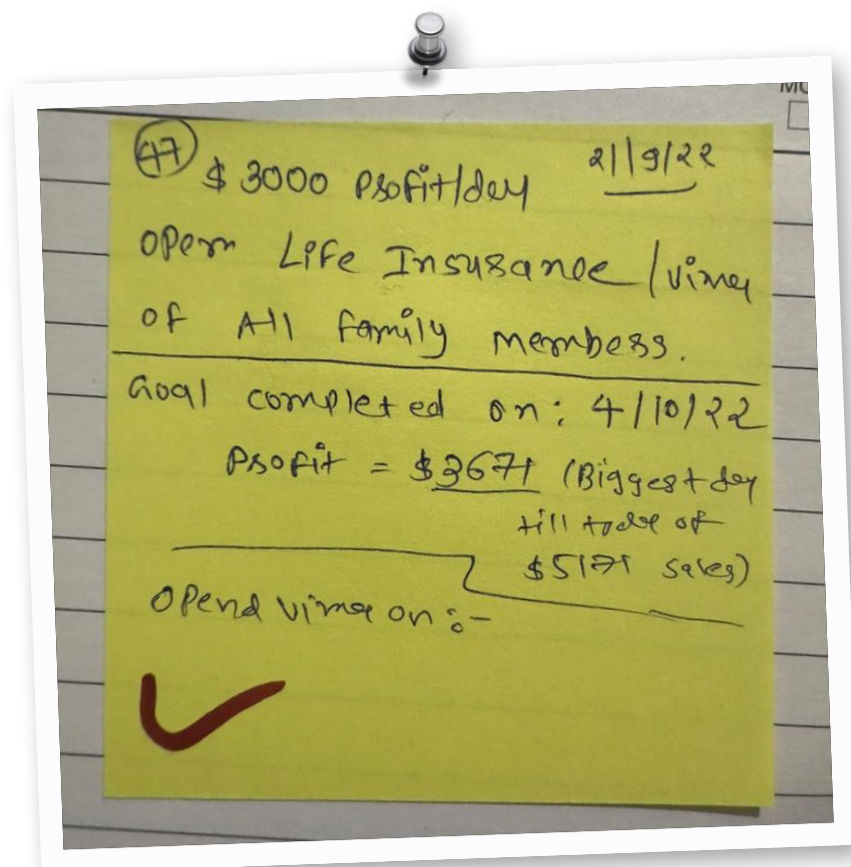 MO
47
$ 3000 Profit/day 21/9/22
Open Life Insurance / vima
of All family members.
Goal completed on: 4/10/22
Profit = $3671 (Biggest day
till todae of
$5171 sales)
Opend vima on :-